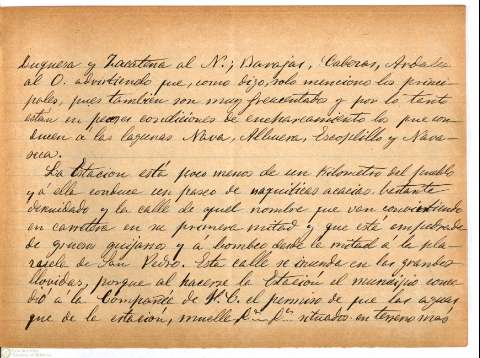 Duquesa y Zacatena al N.; Barajas, Caberas, Andaluz
al O. advirtiendo que, como digo, solo menciono los princi-
pales, pues tambien son muy frecuentados y por lo tanto
estan en peores condiciones de encharcamiento los que con-
ducen á las lagunas Nava, Albuera, Escoplillo y Nava-
seca.
La Estacion está poco menos de un kilometro del pueblo
y á ella conduce un paseo de magnificas acacias, bastante
descuidado y la calle de aquel nombre que van convirtiendo
en carretera en su primera mitad y que está empedrada
de grueso guijarro y a bombeo desde la mitad á la pla-
zuela de San Pedro. Esta calle se inunda en las grandes
llovidas, porque al hacerse la Estación el municipio conce
dió a la Compañia de F. C. el permiso de que las aguas
que de la estación, muelle situados en terreno más